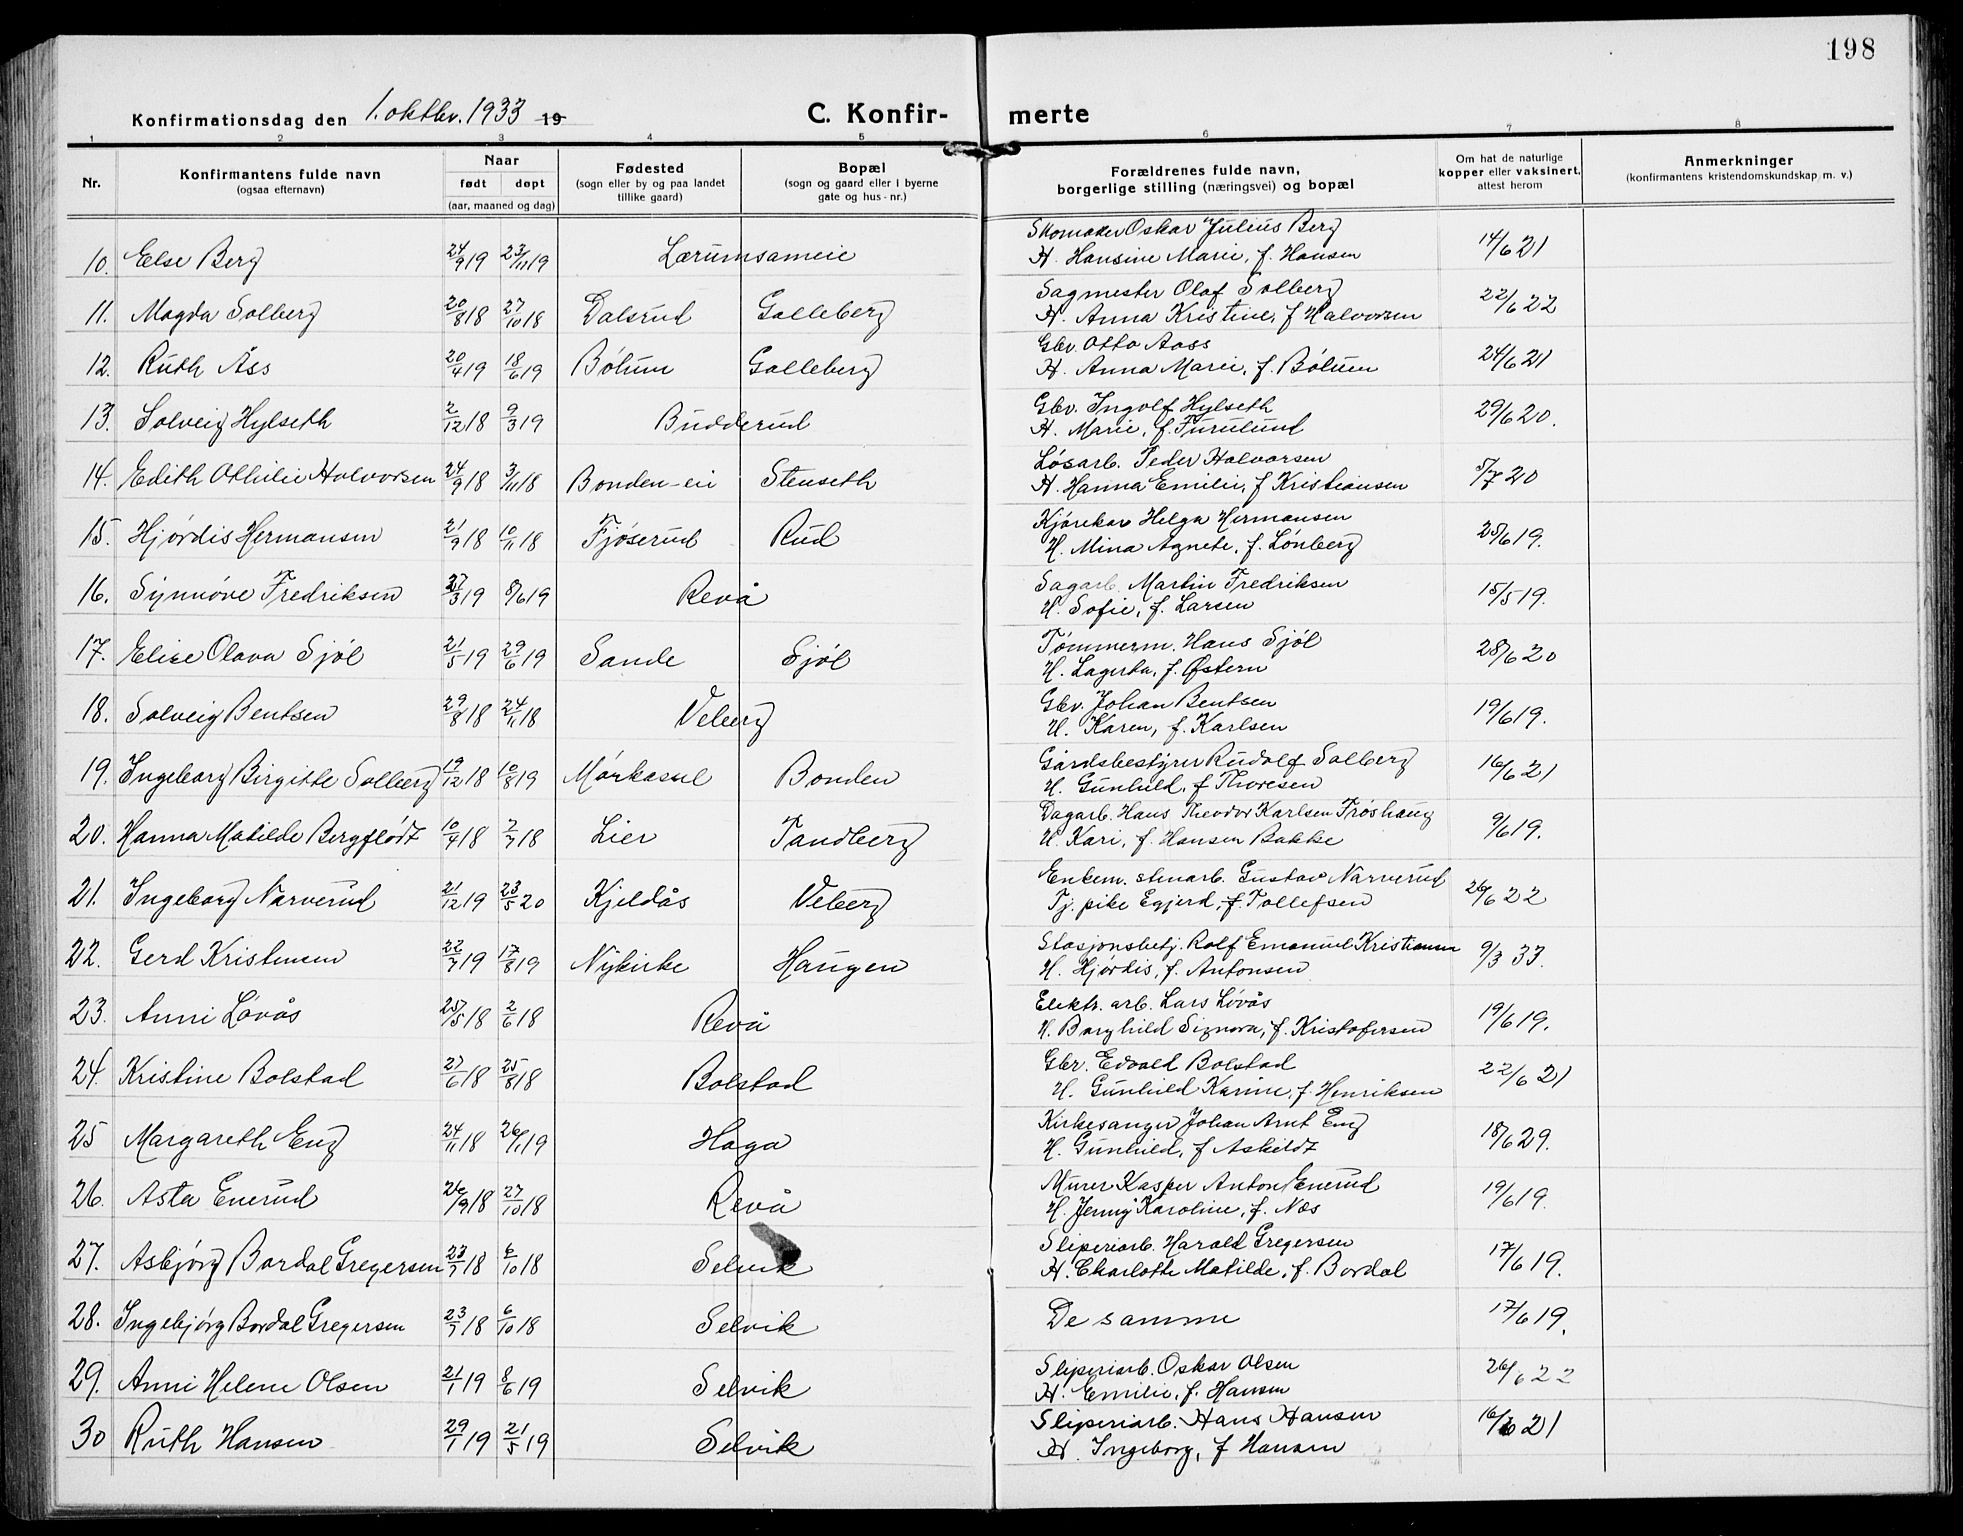 198
Konfirmationsdag den 1. oktbr. 1933 19
C. Konfirmerte
1 2 3 4 5 6 7 8
Nr.
Konfirmantens fulde navn
(ogsaa efternavn)
Naar
født døpt
(aar, maaned og dag)
Fødested
(sogn eller by og paa landet
tillike gaard)
Bopæl
(sogn og gaard eller i byerne
gate og hus-nr.)
Forældrenes fulde navn,
borgerlige stilling (næringsvei) og bopæl
Om hat de naturlige
kopper eller vaksinert,
attest herom
Anmerkninger
(konfirmantens kristendomskundskap m. v.)
Skomaker Oskar Julius Berg
10. Else Berg 24/9 19 23/11 19 Lærumsameie H. Hansine Marie, f. Hansen 14/6 21
Sagmester Olaf Solberg
11. Magda Solberg 20/8 18 27/10 18 Dalsrud Galleberg H. Anna Kristine, f Halvorsen 22/6 22
Gbr. Otto Aass
12. Ruth Ass 20/4 19 18/6 19 Bølum Galleberg H. Anna Marie, f. Bølum 24/6 21
Gbr. Ingolf Hylseth
13. Solveig Hylseth 2/12 18 9/3 19 Budderud H. Marie, f. Furulund 29/6 20.
Løsarb. Peder Halvorsen
14. Edith Othilie Halvorsen 24/9 18 3/11 18 Bonden-eie Stenseth H. Hanna Emilie, f Kristiansen 5/7 20
Kjørekar Helga Hermansen
15. Hjørdis Hermansen 21/9 18 10/11 18 Fjøserud Rud H. Mina Agnete, f. Lønberg 25/6 19.
Sagarb. Martin Fredriksen
16. Synnøve Fredriksen 27/3 19 8/6 19 Revå H. Sofie, f. Larsen 15/5 19.
Tømmerm. Hans Sjøl
17. Elise Olava Sjøl 21/5 19 29/6 19 Sande Sjøl H. Lagerta, f. Østern 28/6 20
Gbr. Johan Bentsen
18. Solveig Bentsen 29/8 18 24/11 18 Veberg H. Karen, f. Karlsen 19/6 19.
Gårdsbestyrer Rudolf Solberg
19. Ingeborg Birgitte Solberg 19/12 18 10/8 19 Mørkasul Bonden H. Gunhild, f Thoresen 16/6 21
Dagarb. Hans Theodor Karlsen Frøshaug
20. Hanna Matilde Bergflødt 10/4 18 7/7 18 Lier Tandberg H. Kari, f. Hansen Bakke 9/6 19.
Enkem. stenarb. Gustav Narverud
21. Ingeborg Narverud 21/12 19 23/5 20 Kjeldås Veberg Tj. pike Egjerd, f. Tollefsen 26/6 22
Stasjonsbetj. Rolf Emanuel Kristensen
22. Gerd Kristensen 22/7 19 17/8 19 Nykirke Haugen H. Hjørdis, f. Antonsen 9/3 33.
Elektr. arb. Lars Løvås
23. Anni Løvås 25/5 18 2/6 18 Revå H. Borghild Signora, f. Kristofersen 19/6 19.
Gbr. Edvald Bolstad
24. Kristine Bolstad 27/6 18 25/8 18 Bolstad H. Gunhild Karine, f. Henriksen 22/6 21
Kirkesanger Johan Arnt Eng
25 Margareth Eng 24/11 18 26/1 19 Haga H. Gunhild, f Askildt 18/6 29.
Murer Kasper Anton Enerud
26. Asta Enerud 26/9 18 27/10 18 Revå H. Jenny Karoline, f. Næs 19/6 19.
Sliperiarb. Harald Gregersen
27. Asbjørg Bordal Gregersen 23/7 18 6/10 18 Selvik H. Charlotte Matilde, f. Bordal 17/6 19.
28. Ingebjørg Bordal Gregersen 23/7 18 6/10 18 Selvik De samme 17/6 19.
Sliperiarb. Oskar Olsen
29. Anni Helene Olsen 21/1 19 8/6 19 Selvik H. Emilie, f. Hansen 26/6 22
Sliperiarb. Hans Hansen
30 Ruth Hansen 29/1 19 21/5 19 Selvik H. Ingeborg, f Hansen 16/6 21